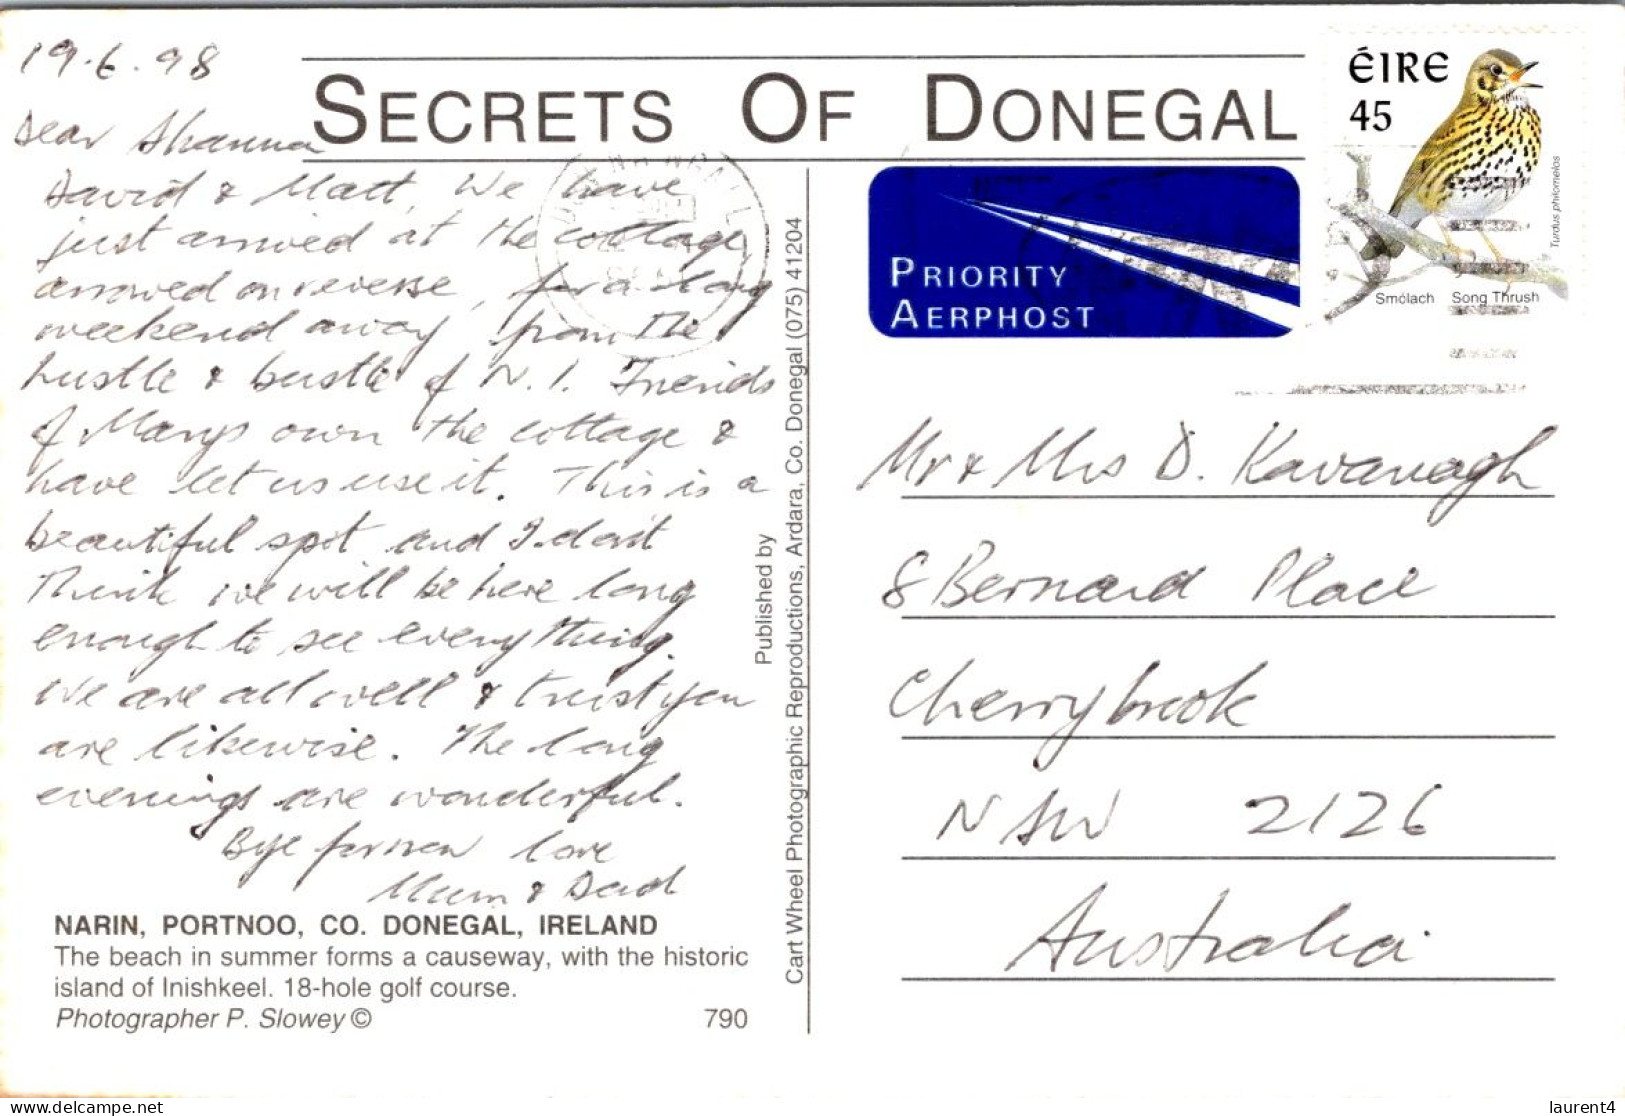 19.6.98
SECRETS OF DONEGAL
Dear Shauna
David & Matt, We have
just arrived at the cottage,
arrowed on reverse, for a long
weekend away from the
hustle & bustle of N.I. Friends
of Marys own the cottage &
have let us use it. This is a
beautiful spot and I don't
think we will be here long
enough to see everything.
We are all well & trust you
are likewise. The long
evenings are wonderful.
Bye for now love
Mum & Dad
NARIN, PORTNOO, CO. DONEGAL, IRELAND
The beach in summer forms a causeway, with the historic
island of Inishkeel. 18-hole golf course.
Photographer P. Slowey ©
790
Published by
Cart Wheel Photographic Reproductions, Ardara, Co. Donegal (075) 41204
PRIORITY
AERPHOST
ÉIRE
45
Turdus philomelos
Smólach Song Thrush
Mr & Mrs D. Kavanagh
8 Bernard Place
Cherrybrook
NSW 2126
Australia
laurent4